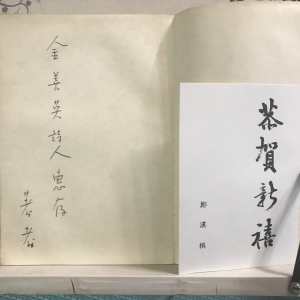 金善英詩人惠存
恭賀新禧
鄭漢模